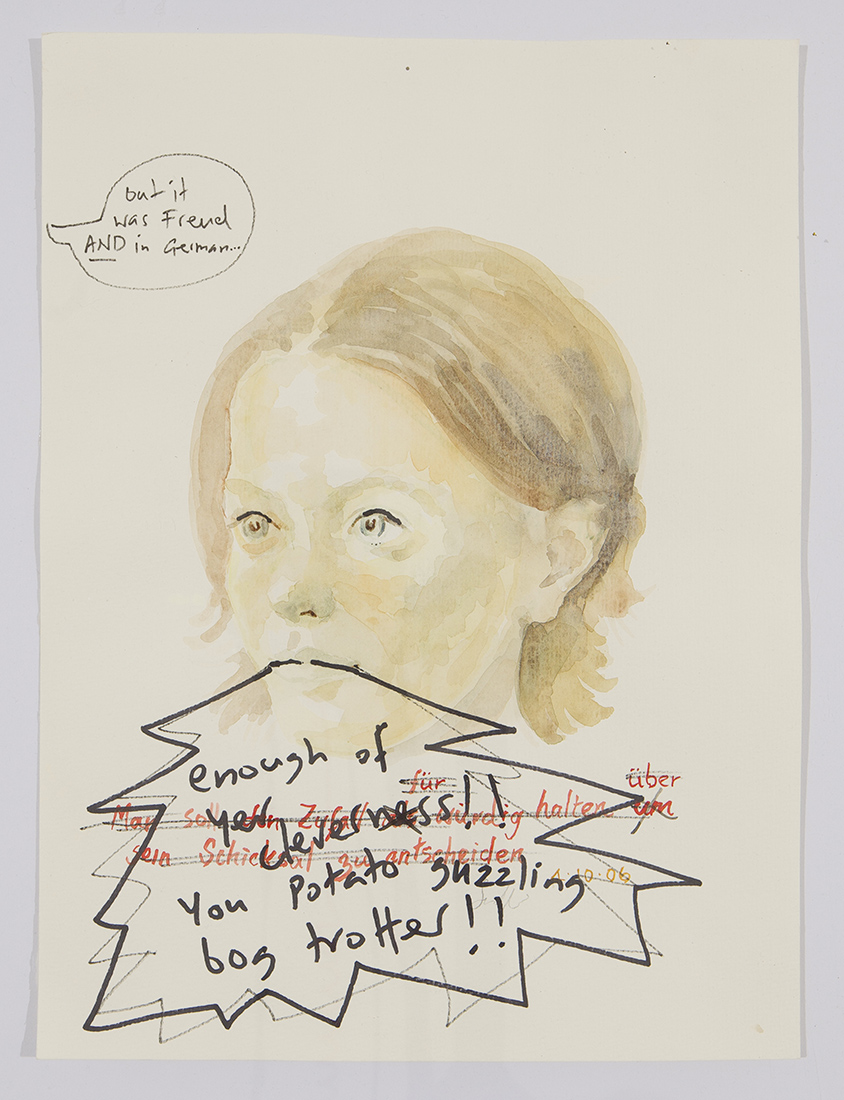 but it
was Freud
AND in German...
enough of
für
über
yer
Man soll den Zufall würdig halten um
cleverness!!
sein Schicksal zu entscheiden
1.10.06
you potato guzzling
bog trotter!!